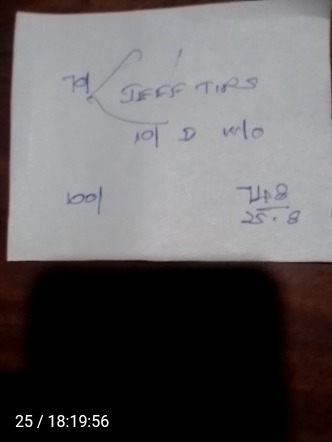 70/
JEFF TIPS
10/ D W/O
100/
74.8
25.8
25 / 18:19:56